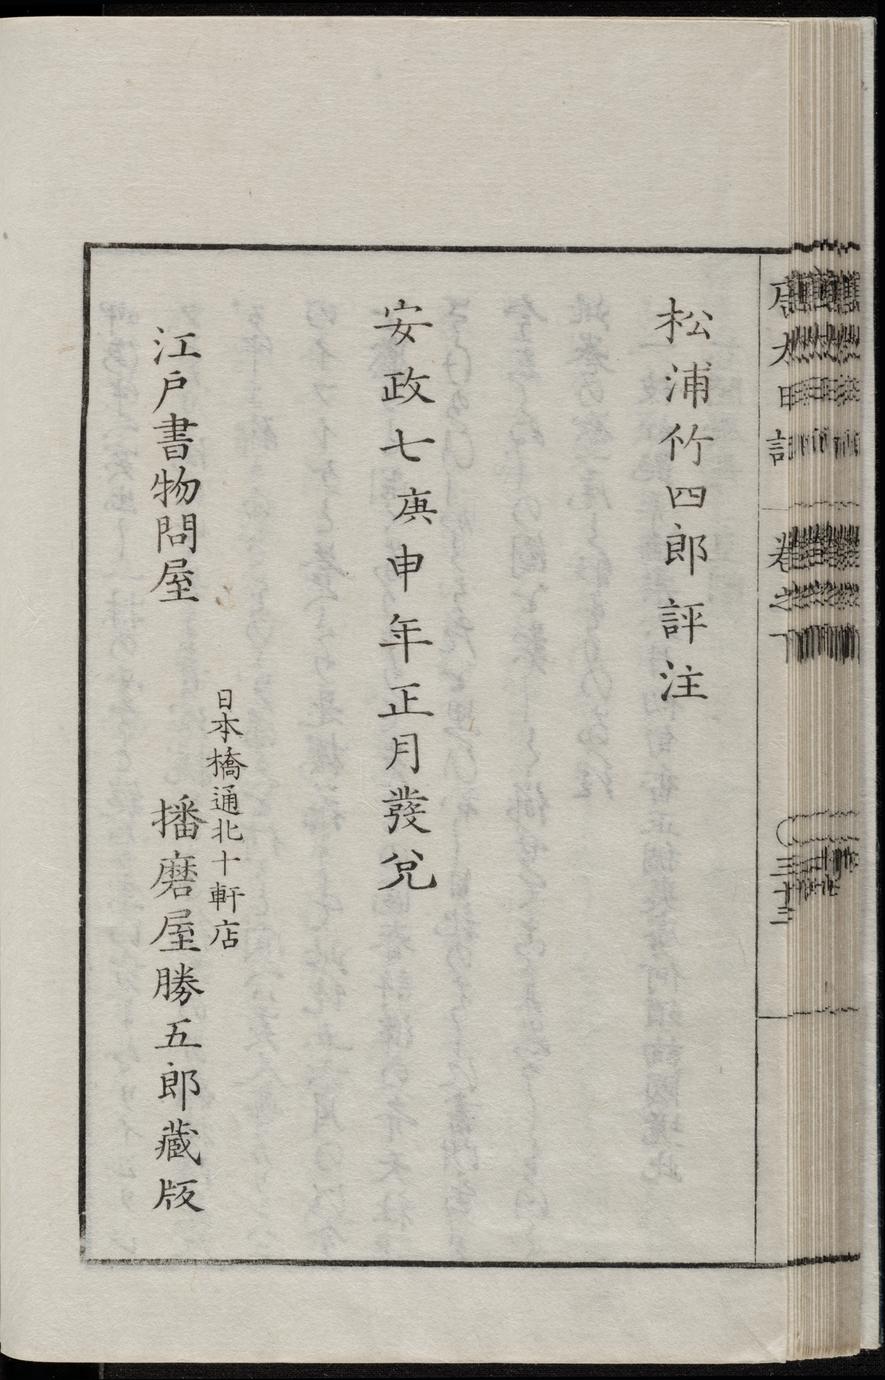 唐太日記 卷之下 三十三
松浦竹四郎評注
安政七庚申年正月發兌
日本橋通北十軒店
江戸書物問屋 播磨屋勝五郎藏版